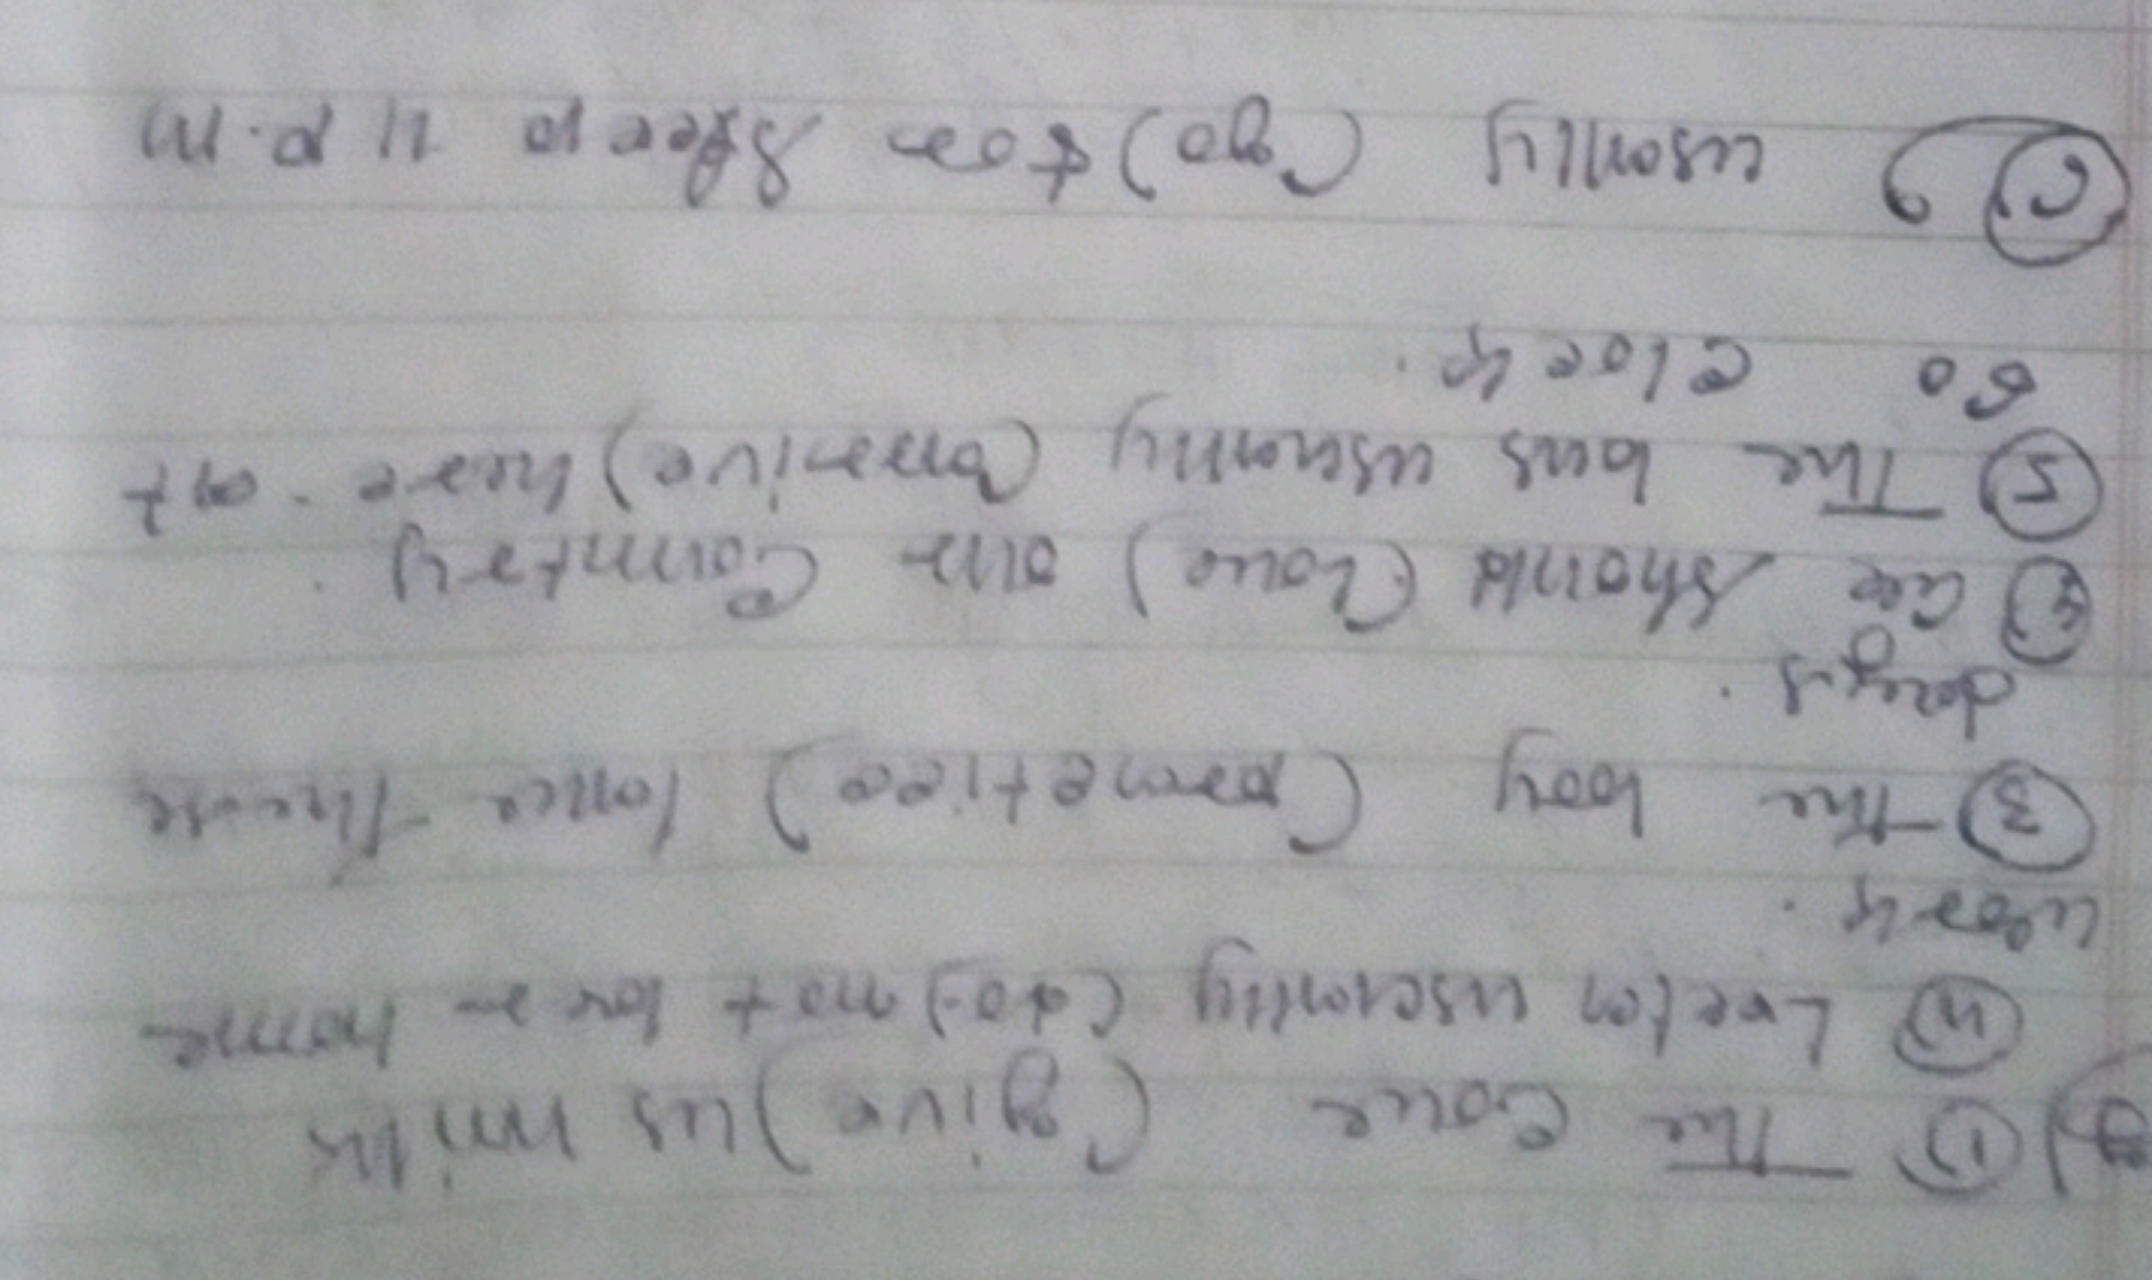 ① The Cow (give) us milk
② usually (do) not home
work.
③ The boy (practice) three
days.
④ we should (love) our Country.
⑤ The bus usually (arrive) here at
60 Clock.
⑥ usually (go) for sleep 11 p.m